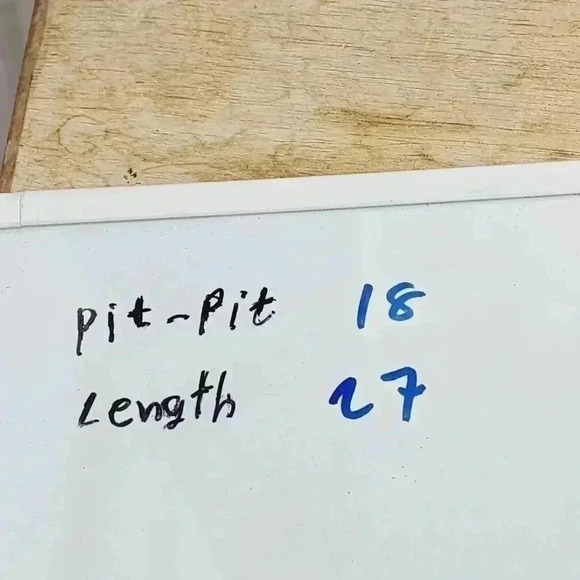 Pit-Pit 18
Length 27